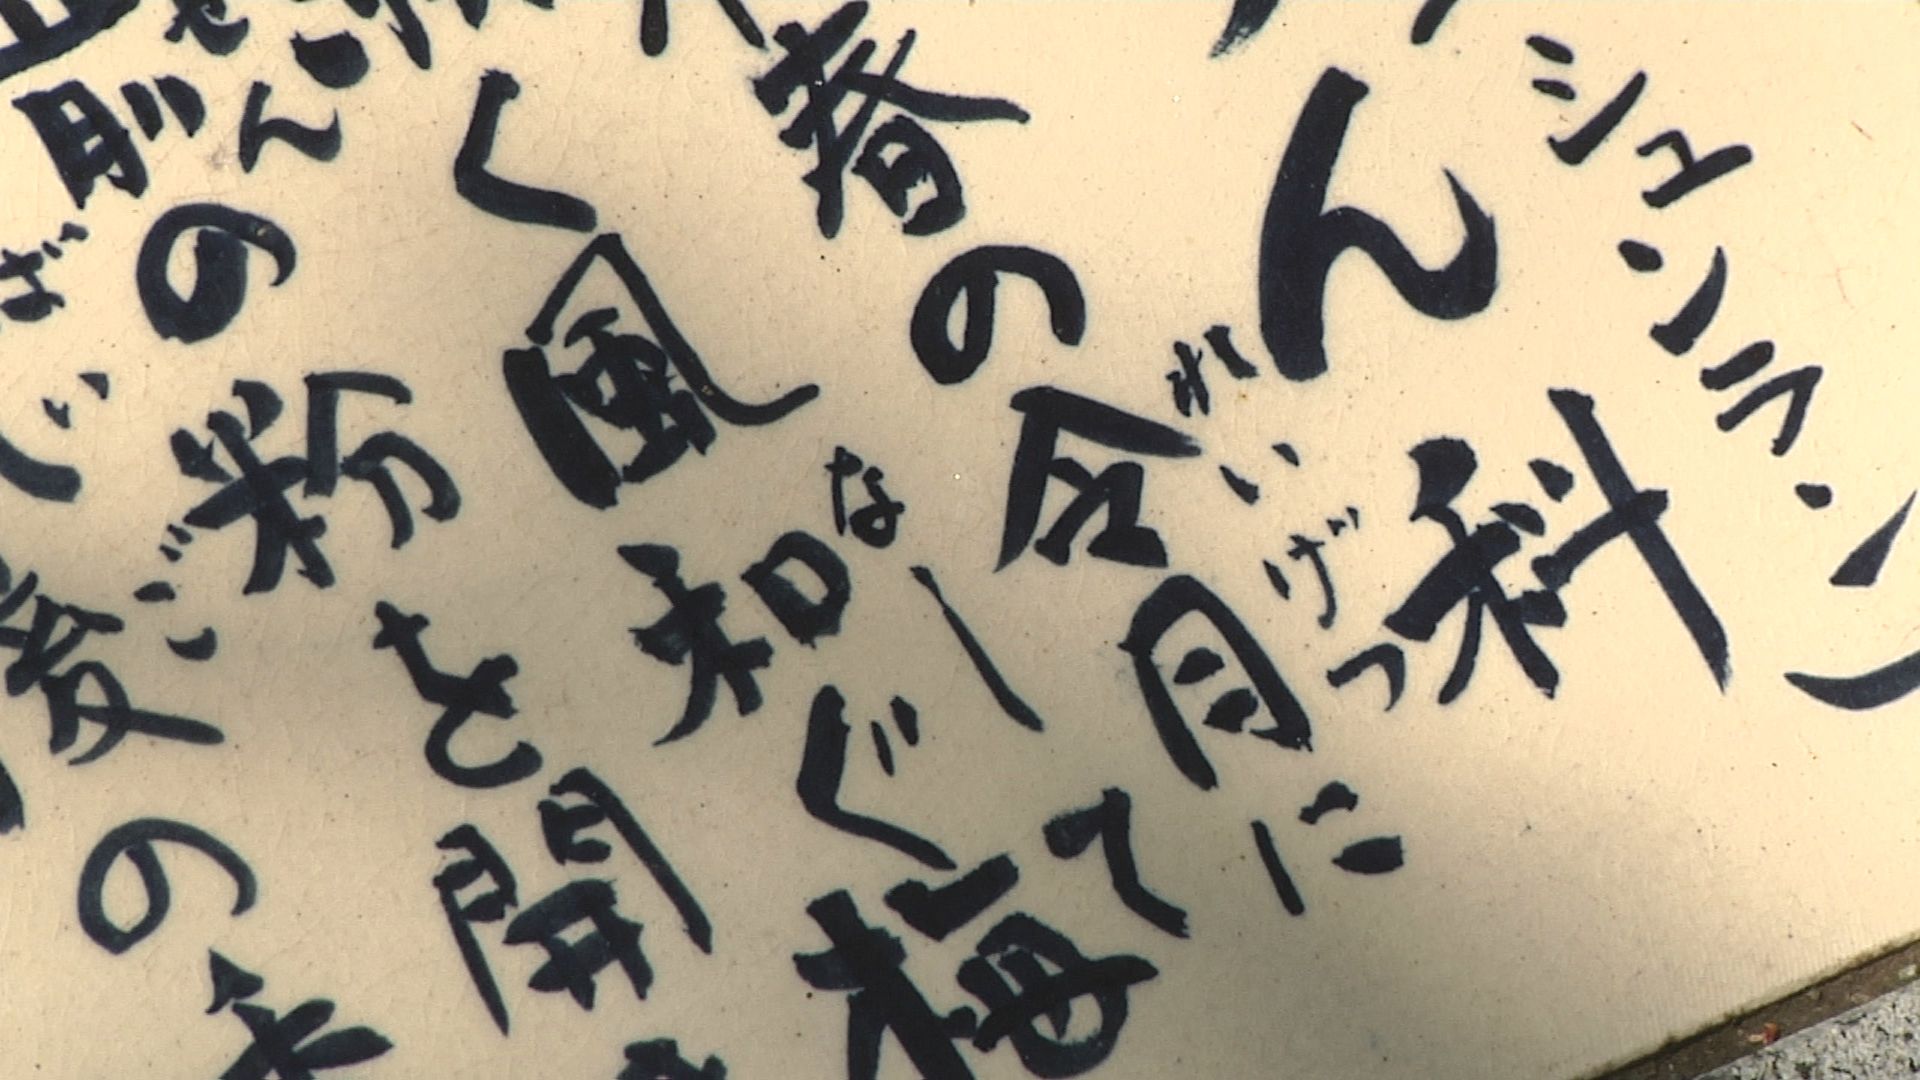 シュンラン
ん科
れいげつ
春の令月に
して
な
く風和ぐ梅
ぜん
前の粉を開
ご
後の香